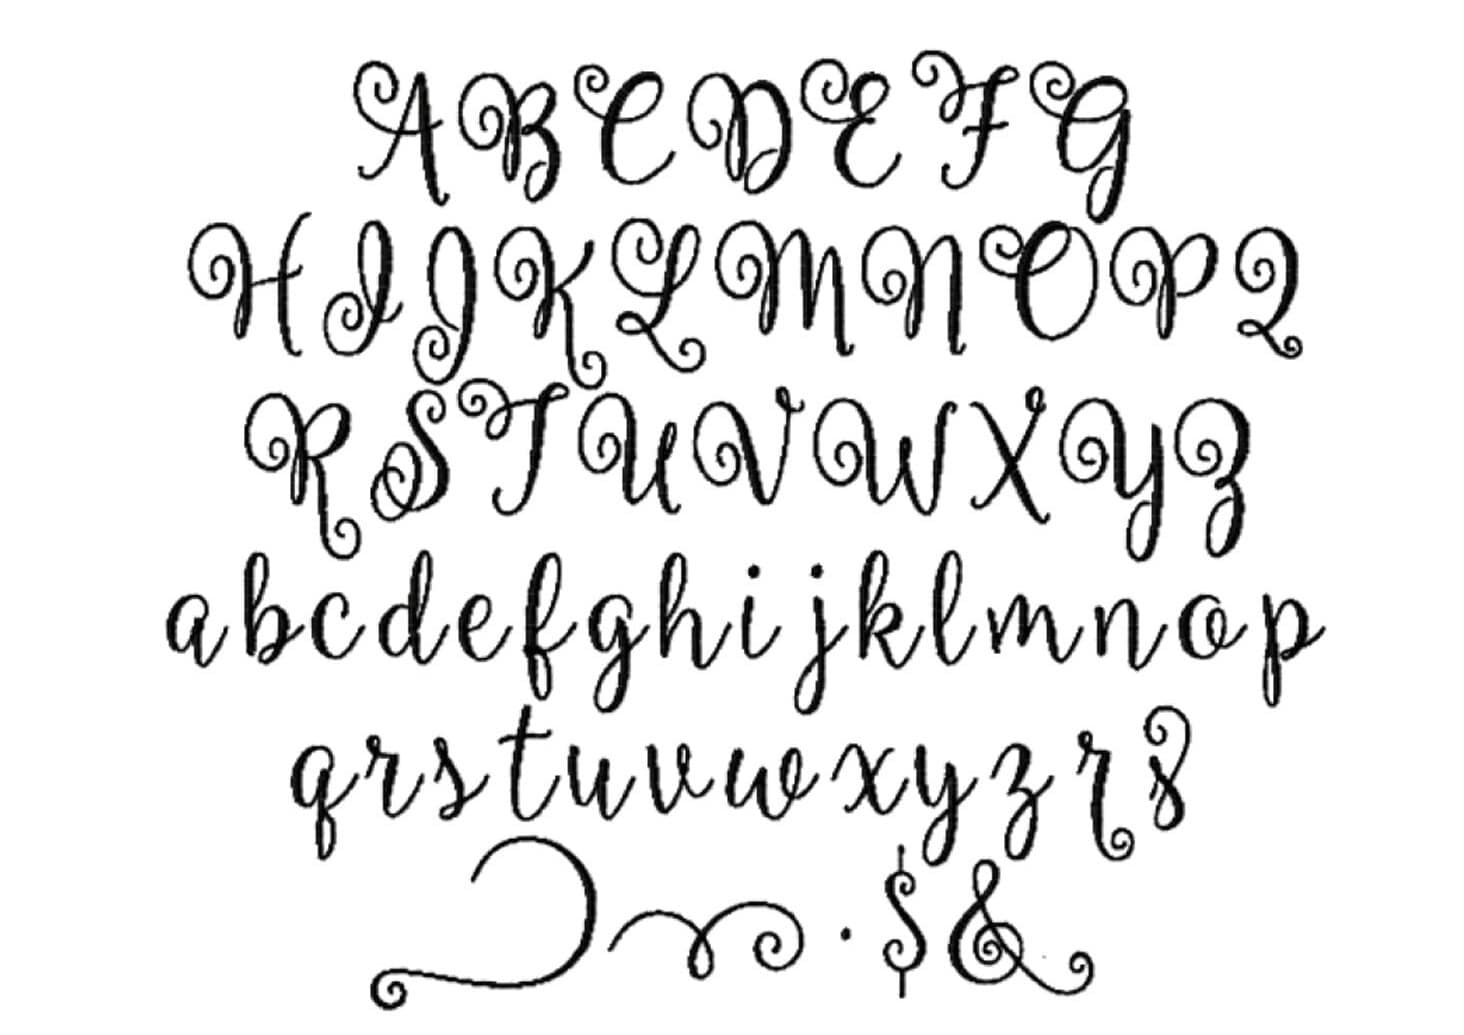 ABCDEFG
HIJKLMNOPQ
RSTUVWXYZ
abcdefghijklmnop
qrstuvwxyzrs
. $ &